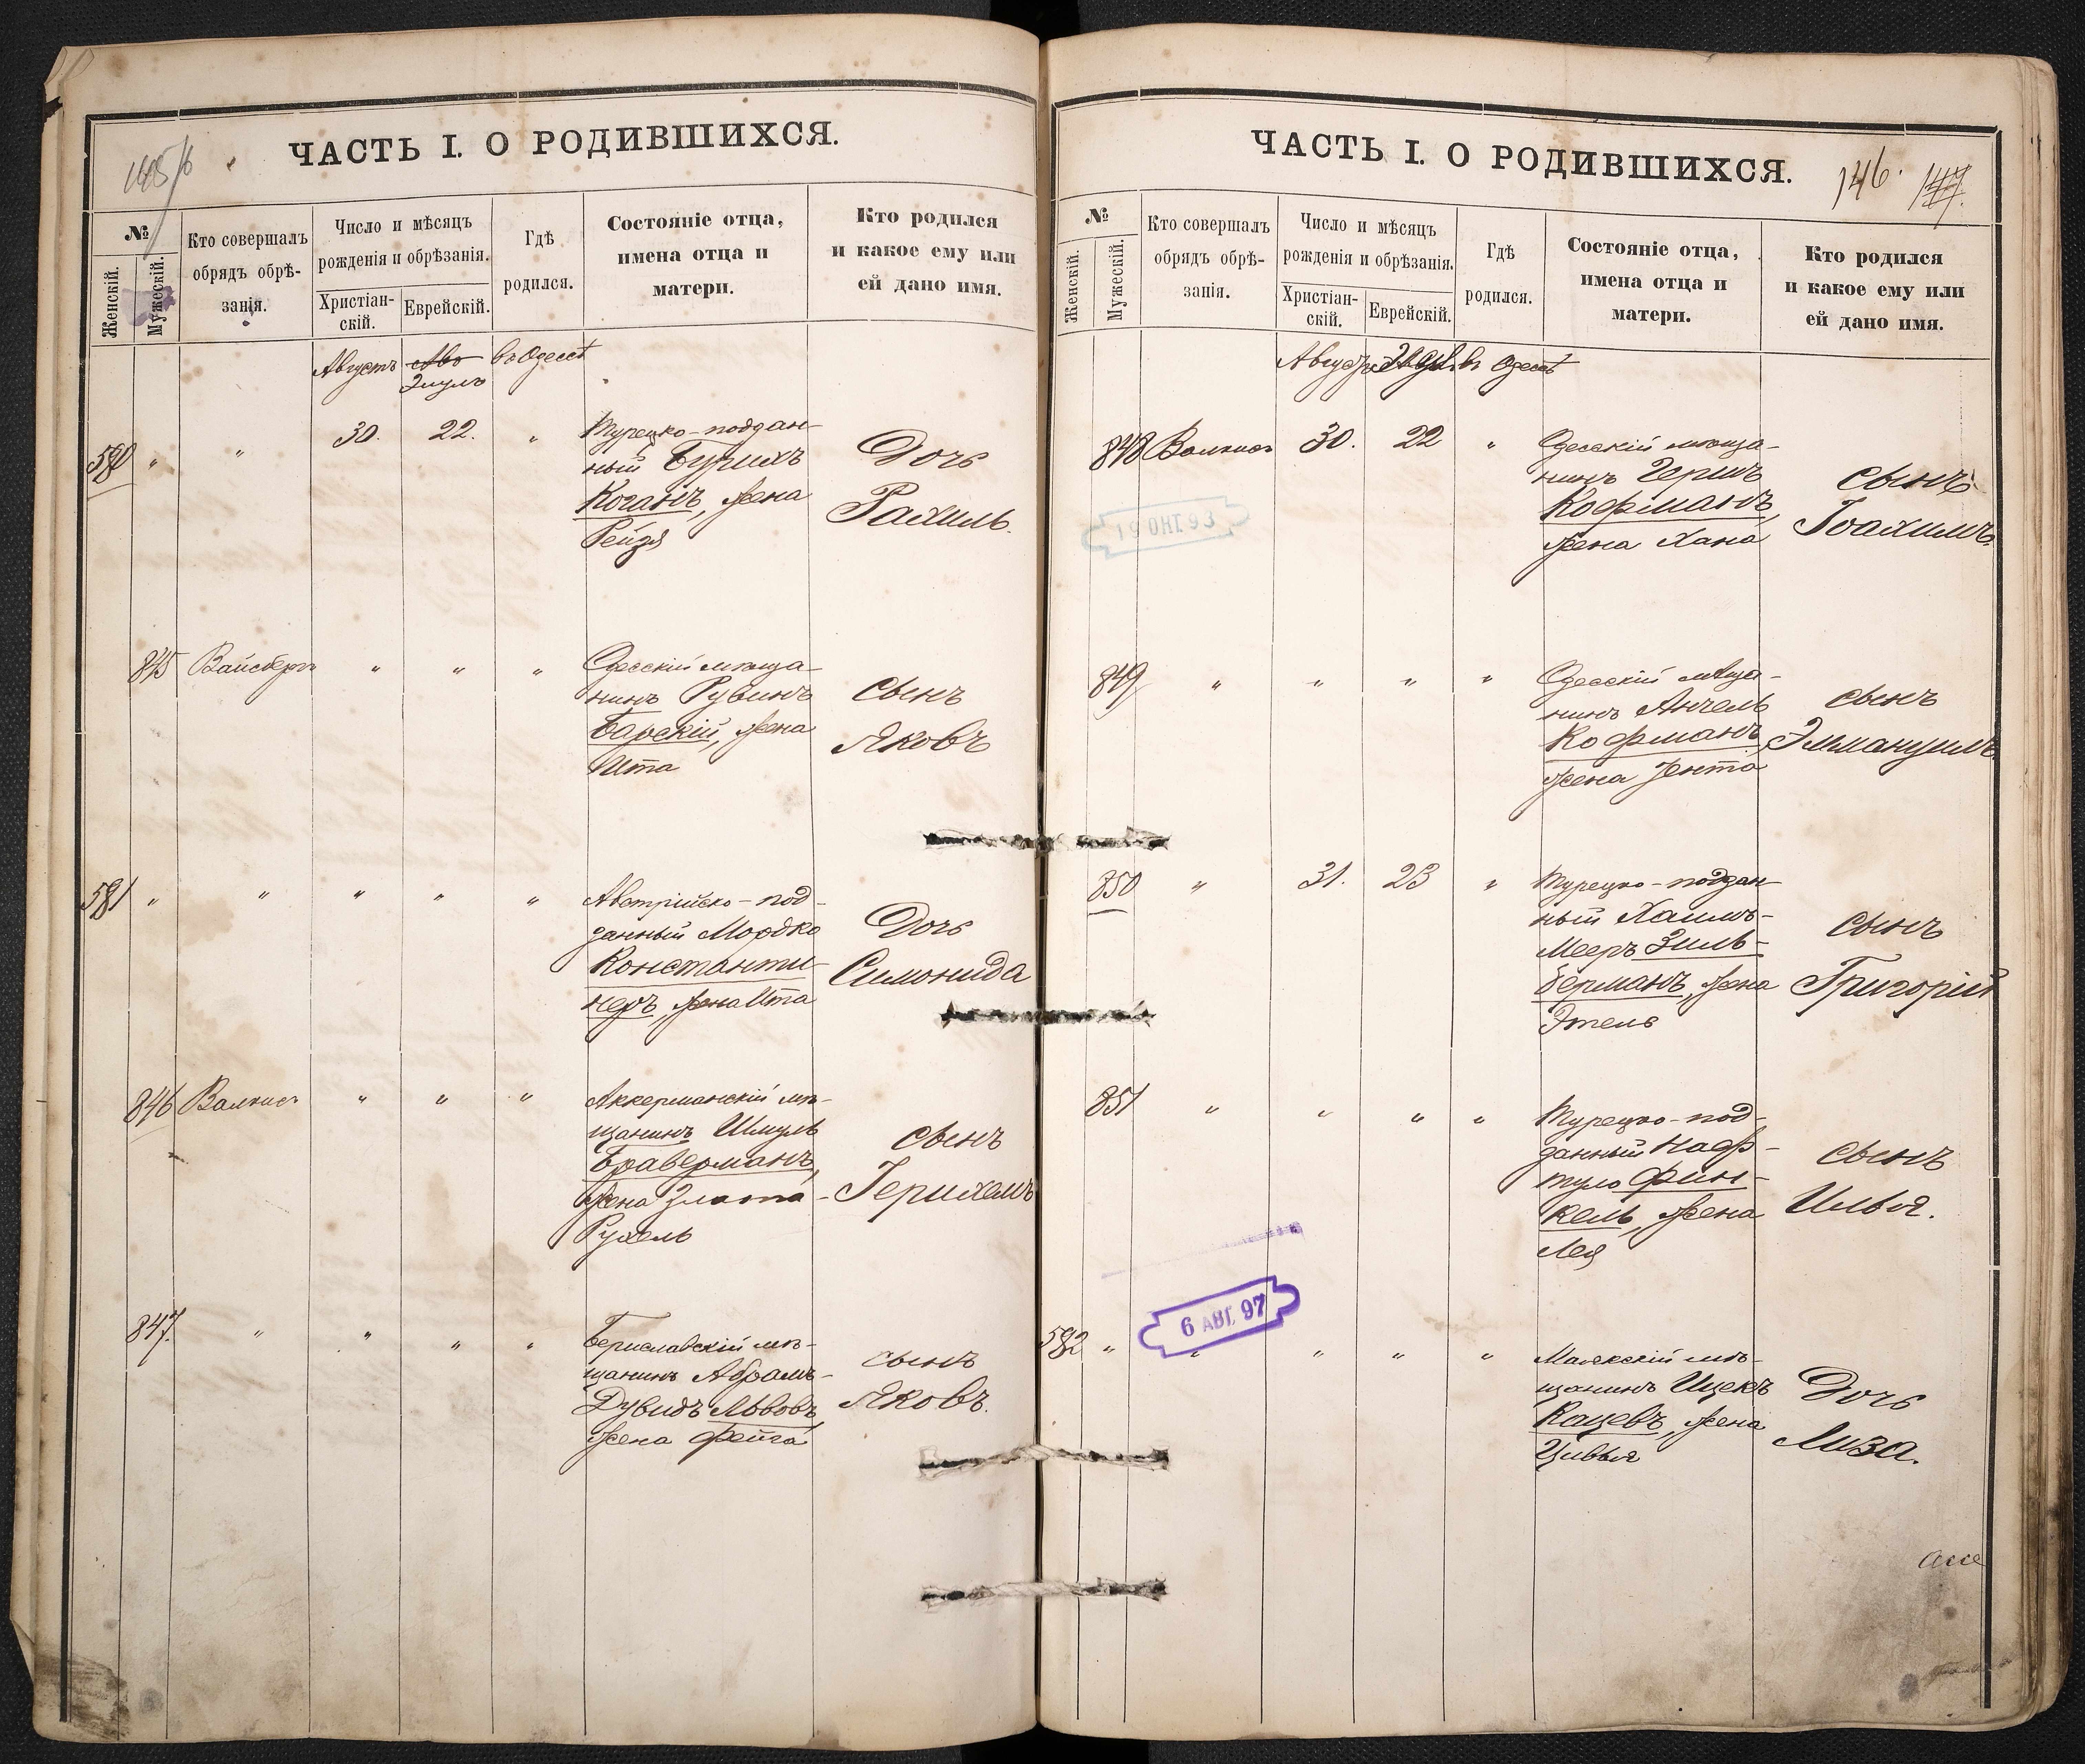 ЧАСТЬ I. О РОДИВШИХСЯ.
№
Женскій.
Мужескій.
Кто совершалъ
обрядъ обрѣ-
занія.
Число и мѣсяцъ
рожденія и обрѣзанія.
Христіан-
скій.
Еврейскій.
Гдѣ
родился.
Состояніе отца,
имена отца и
матери.
Кто родился
и какое ему или
ей дано имя.
Августъ Авъ въ Одессѣ
Элулъ
580 " " 30. 22. " Турецко-поддан-
ный Бурихъ
Коганъ, жена
Рейзя
Дочь
Рахиль.
845 Вайсбергъ " " " Одесскій мѣща-
нинъ Рувинъ
Барскій, жена
Ита
сынъ
Яковъ
581 " " " " " Австрійско-под-
данный Мордко
Константи-
неръ, жена Ита
Дочь
Симонида
846 " " " Аккерманскій мѣ-
щанинъ Шмуль
Браверманъ,
жена Злата-
Рухель
сынъ
Іерихемъ
847. " " " " Бериславскій мѣ-
щанинъ Абрамъ-
Дувидъ Львовъ,
жена Фейга
сынъ
Яковъ.
ЧАСТЬ I. О РОДИВШИХСЯ.
146. 147.
№
Женскій.
Мужескій.
Кто совершалъ
обрядъ обрѣ-
занія.
Число и мѣсяцъ
рожденія и обрѣзанія.
Христіан-
скій.
Еврейскій.
Гдѣ
родился.
Состояніе отца,
имена отца и
матери.
Кто родился
и какое ему или
ей дано имя.
Августъ въ Одессѣ
848 30. 22 " Одесскій мѣща-
нинъ Гершъ
Кофманъ,
жена Хана
сынъ
Іоахимъ.
849 " " " " Одесскій мѣща-
нинъ Анчель
Кофманъ
жена Іента
сынъ
Эммануилъ.
850 " 31. 23 " Турецко-поддан-
ный Хаимъ-
Мееръ Зиль-
берманъ, жена
Этель
сынъ
Григорій
851 " " " " Турецко-под-
данный Наф-
туло Фин-
кель, жена
Лея
сынъ
Илья.
6 АВГ. 97
582 " " " " " Маякскій мѣ-
щанинъ Ицекъ
Кацевъ, жена
Цивья
Дочь
Лиза.